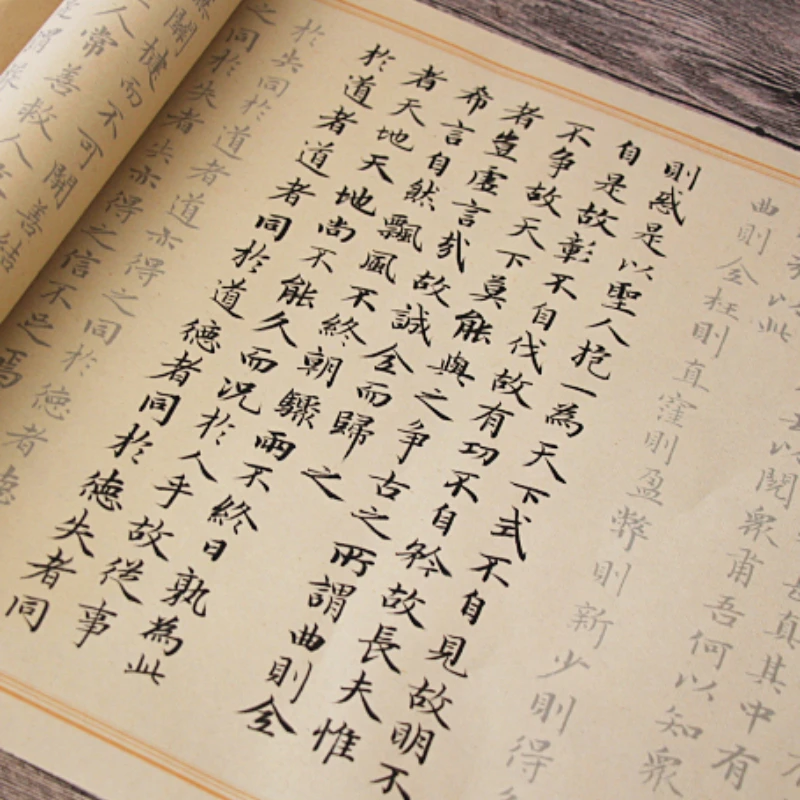 甚真其中有
以閱衆甫吾何以知衆
以此
曲則全枉則直窪則盈弊則新少則得
則惑是以聖人抱一為天下式不自見故明不
自是故彰不自伐故有功不自矜故長夫惟
不争故天下莫能與之争古之所謂曲則全
者豈虛言哉故誠全而歸之
希言自然飄風不終朝驟雨不終日孰為此
者天地天地尚不能久而況於人乎故從事
於道者道者同於道德者同於德失者同
於失同於道者道亦得之同於德者德
之同於失者失亦得之信不足焉
關楗而不可開善結
人常善救人